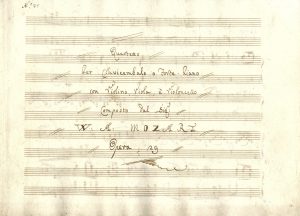 Quartetto
Per Clavicembalo o Forte Piano
con Violino, Viola, e Violoncello
Composto Dal Sigr
W. A. MOZART
Opera 29